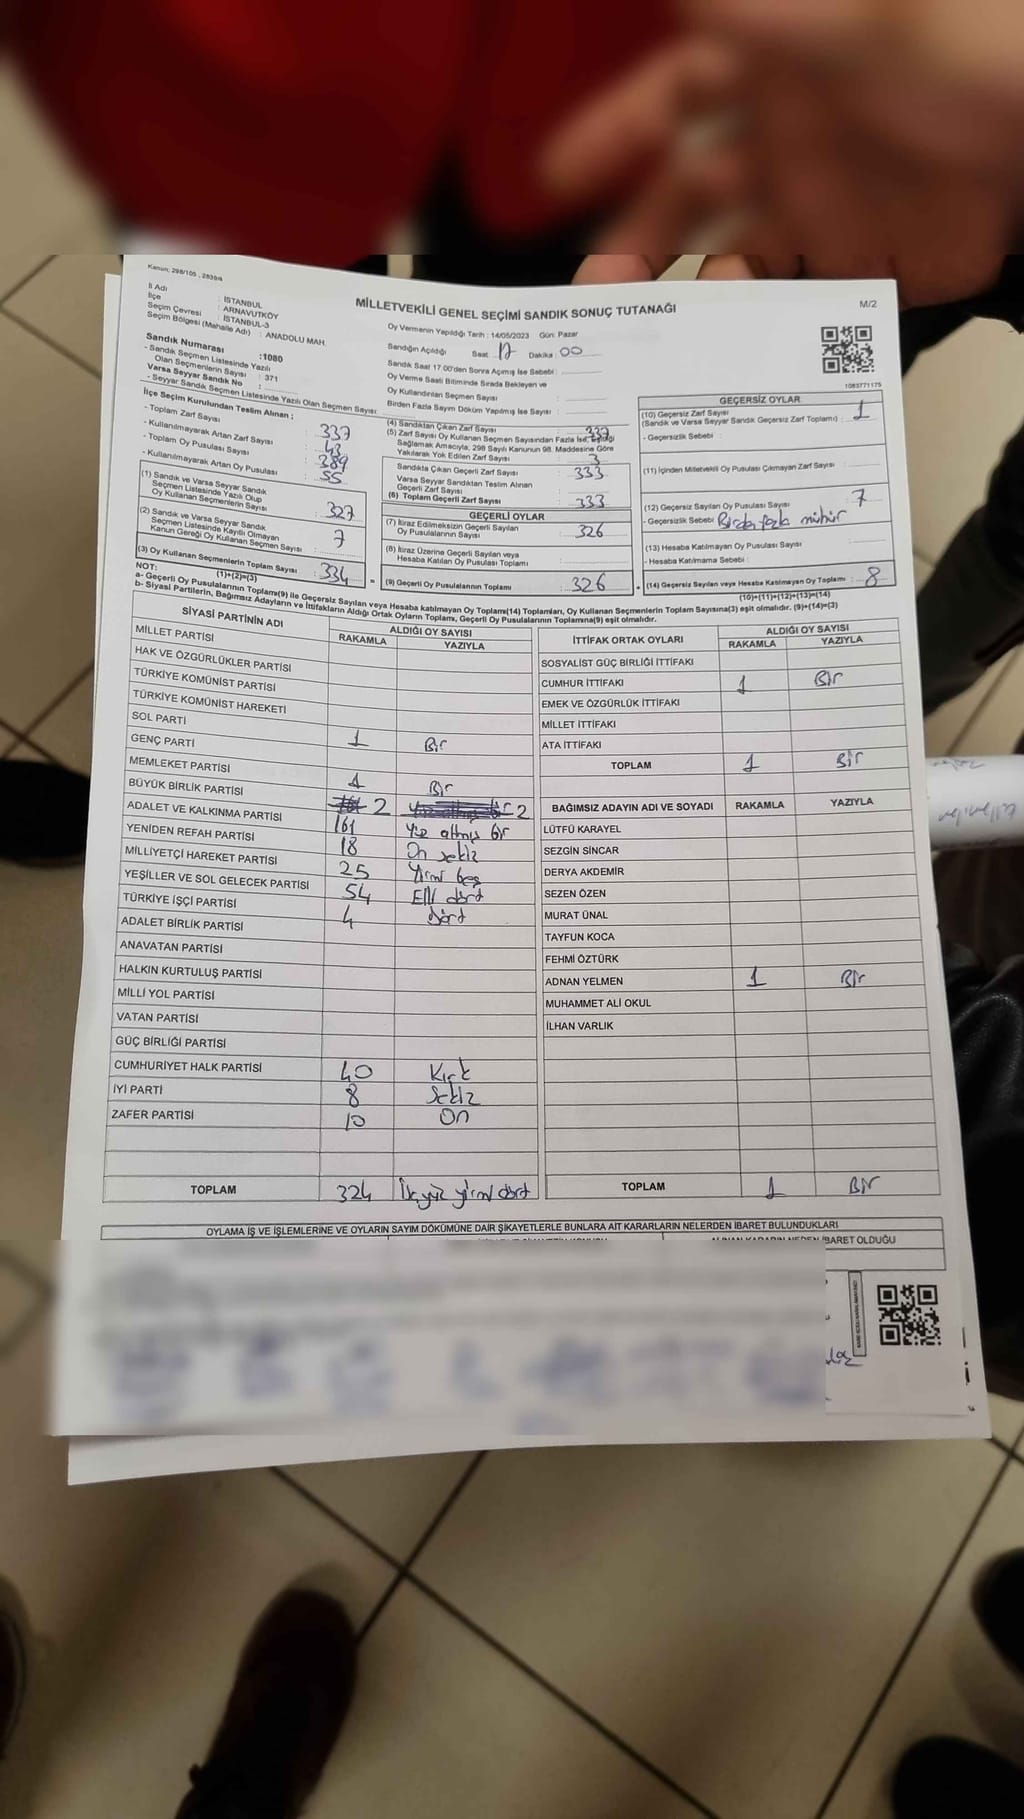 Kanun: 298/105, 2839/4
MİLLETVEKİLİ GENEL SEÇİMİ SANDIK SONUÇ TUTANAĞI
M/2
İl Adı : İSTANBUL
İlçe : ARNAVUTKÖY
Seçim Çevresi : İSTANBUL-3
Seçim Bölgesi (Mahalle Adı) : ANADOLU MAH.
Sandık Numarası :1080
- Sandık Seçmen Listesinde Yazılı
Olan Seçmenlerin Sayısı : 371
Varsa Seyyar Sandık No :
- Seyyar Sandık Seçmen Listesinde Yazılı Olan Seçmen Sayısı:
Oy Vermenin Yapıldığı Tarih : 14/05/2023 Gün: Pazar
Sandığın Açıldığı Saat: 17 Dakika: 00
Sandık Saat 17.00'den Sonra Açılmış İse Sebebi :
Oy Verme Saati Bitiminde Sırada Bekleyen ve
Oy Kullandırılan Seçmen Sayısı :
Birden Fazla Sayım Döküm Yapılmış İse Sayısı :
1083771175
İlçe Seçim Kurulundan Teslim Alınan ;
- Toplam Zarf Sayısı : 337
- Kullanılmayarak Artan Zarf Sayısı : 43
- Toplam Oy Pusulası Sayısı : 389
- Kullanılmayarak Artan Oy Pusulası : 55
(1) Sandık ve Varsa Seyyar Sandık
Seçmen Listesinde Yazılı Olup
Oy Kullanan Seçmenlerin Sayısı : 327
(2) Sandık ve Varsa Seyyar Sandık
Seçmen Listesinde Kayıtlı Olmayan
Kanun Gereği Oy Kullanan Seçmen Sayısı : 7
(3) Oy Kullanan Seçmenlerin Toplam Sayısı : 334
(1)+(2)=(3)
(4) Sandıktan Çıkan Zarf Sayısı : 337
(5) Zarf Sayısı Oy Kullanan Seçmen Sayısından Fazla İse, Eşitliği
Sağlamak Amacıyla, 298 Sayılı Kanunun 98. Maddesine Göre
Yakılarak Yok Edilen Zarf Sayısı : 3
Sandıkta Çıkan Geçerli Zarf Sayısı : 333
Varsa Seyyar Sandıktan Teslim Alınan
Geçerli Zarf Sayısı :
(6) Toplam Geçerli Zarf Sayısı : 333
GEÇERLİ OYLAR
(7) İtiraz Edilmeksizin Geçerli Sayılan
Oy Pusulalarının Sayısı : 326
(8) İtiraz Üzerine Geçerli Sayılan veya
Hesaba Katılan Oy Pusulası Toplamı :
(9) Geçerli Oy Pusulalarının Toplamı : 326
GEÇERSİZ OYLAR
(10) Geçersiz Zarf Sayısı
(Sandık ve Varsa Seyyar Sandık Geçersiz Zarf Toplamı) : 1
- Geçersizlik Sebebi :
(11) İçinden Milletvekili Oy Pusulası Çıkmayan Zarf Sayısı :
(12) Geçersiz Sayılan Oy Pusulası Sayısı : 7
- Geçersizlik Sebebi : Birden fazla mühür
(13) Hesaba Katılmayan Oy Pusulası Sayısı :
- Hesaba Katılmama Sebebi :
(14) Geçersiz Sayılan veya Hesaba Katılmayan Oy Toplamı : 8
(10)+(11)+(12)+(13)=(14)
NOT:
a- Geçerli Oy Pusulalarının Toplamı(9) ile Geçersiz Sayılan veya Hesaba katılmayan Oy Toplamı(14) Toplamları, Oy Kullanan Seçmenlerin Toplam Sayısına(3) eşit olmalıdır. (9)+(14)=(3)
b- Siyasi Partilerin, Bağımsız Adayların ve İttifakların Aldığı Ortak Oyların Toplamı, Geçerli Oy Pusulalarının Toplamına(9) eşit olmalıdır.
SİYASİ PARTİNİN ADI ALDIĞI OY SAYISI
RAKAMLA YAZIYLA
MİLLET PARTİSİ
HAK VE ÖZGÜRLÜKLER PARTİSİ
TÜRKİYE KOMÜNİST PARTİSİ
TÜRKİYE KOMÜNİST HAREKETİ
SOL PARTİ
GENÇ PARTİ 1 Bir
MEMLEKET PARTİSİ
BÜYÜK BİRLİK PARTİSİ 1 Bir
ADALET VE KALKINMA PARTİSİ 2 2
161 Yüz altmış bir
YENİDEN REFAH PARTİSİ 18 On sekiz
MİLLİYETÇİ HAREKET PARTİSİ 25 Yirmi beş
YEŞİLLER VE SOL GELECEK PARTİSİ 54 Elli dört
TÜRKİYE İŞÇİ PARTİSİ 4 Dört
ADALET BİRLİK PARTİSİ
ANAVATAN PARTİSİ
HALKIN KURTULUŞ PARTİSİ
MİLLİ YOL PARTİSİ
VATAN PARTİSİ
GÜÇ BİRLİĞİ PARTİSİ
CUMHURİYET HALK PARTİSİ 40 Kırk
İYİ PARTİ 8 Sekiz
ZAFER PARTİSİ 10 On
TOPLAM 324 Üçyüz yirmi dört
İTTİFAK ORTAK OYLARI ALDIĞI OY SAYISI
RAKAMLA YAZIYLA
SOSYALİST GÜÇ BİRLİĞİ İTTİFAKI
CUMHUR İTTİFAKI 1 Bir
EMEK VE ÖZGÜRLÜK İTTİFAKI
MİLLET İTTİFAKI
ATA İTTİFAKI
TOPLAM 1 Bir
BAĞIMSIZ ADAYIN ADI VE SOYADI RAKAMLA YAZIYLA
LÜTFÜ KARAYEL
SEZGİN SİNCAR
DERYA AKDEMİR
SEZEN ÖZEN
MURAT ÜNAL
TAYFUN KOCA
FEHMİ ÖZTÜRK
ADNAN YELMEN 1 Bir
MUHAMMET ALİ OKUL
İLHAN VARLIK
TOPLAM 1 Bir
OYLAMA İŞ VE İŞLEMLERİNE VE OYLARIN SAYIM DÖKÜMÜNE DAİR ŞİKAYETLERLE BUNLARA AİT KARARLARIN NELERDEN İBARET BULUNDUKLARI
ALINAN KARARIN NEDEN İBARET OLDUĞU